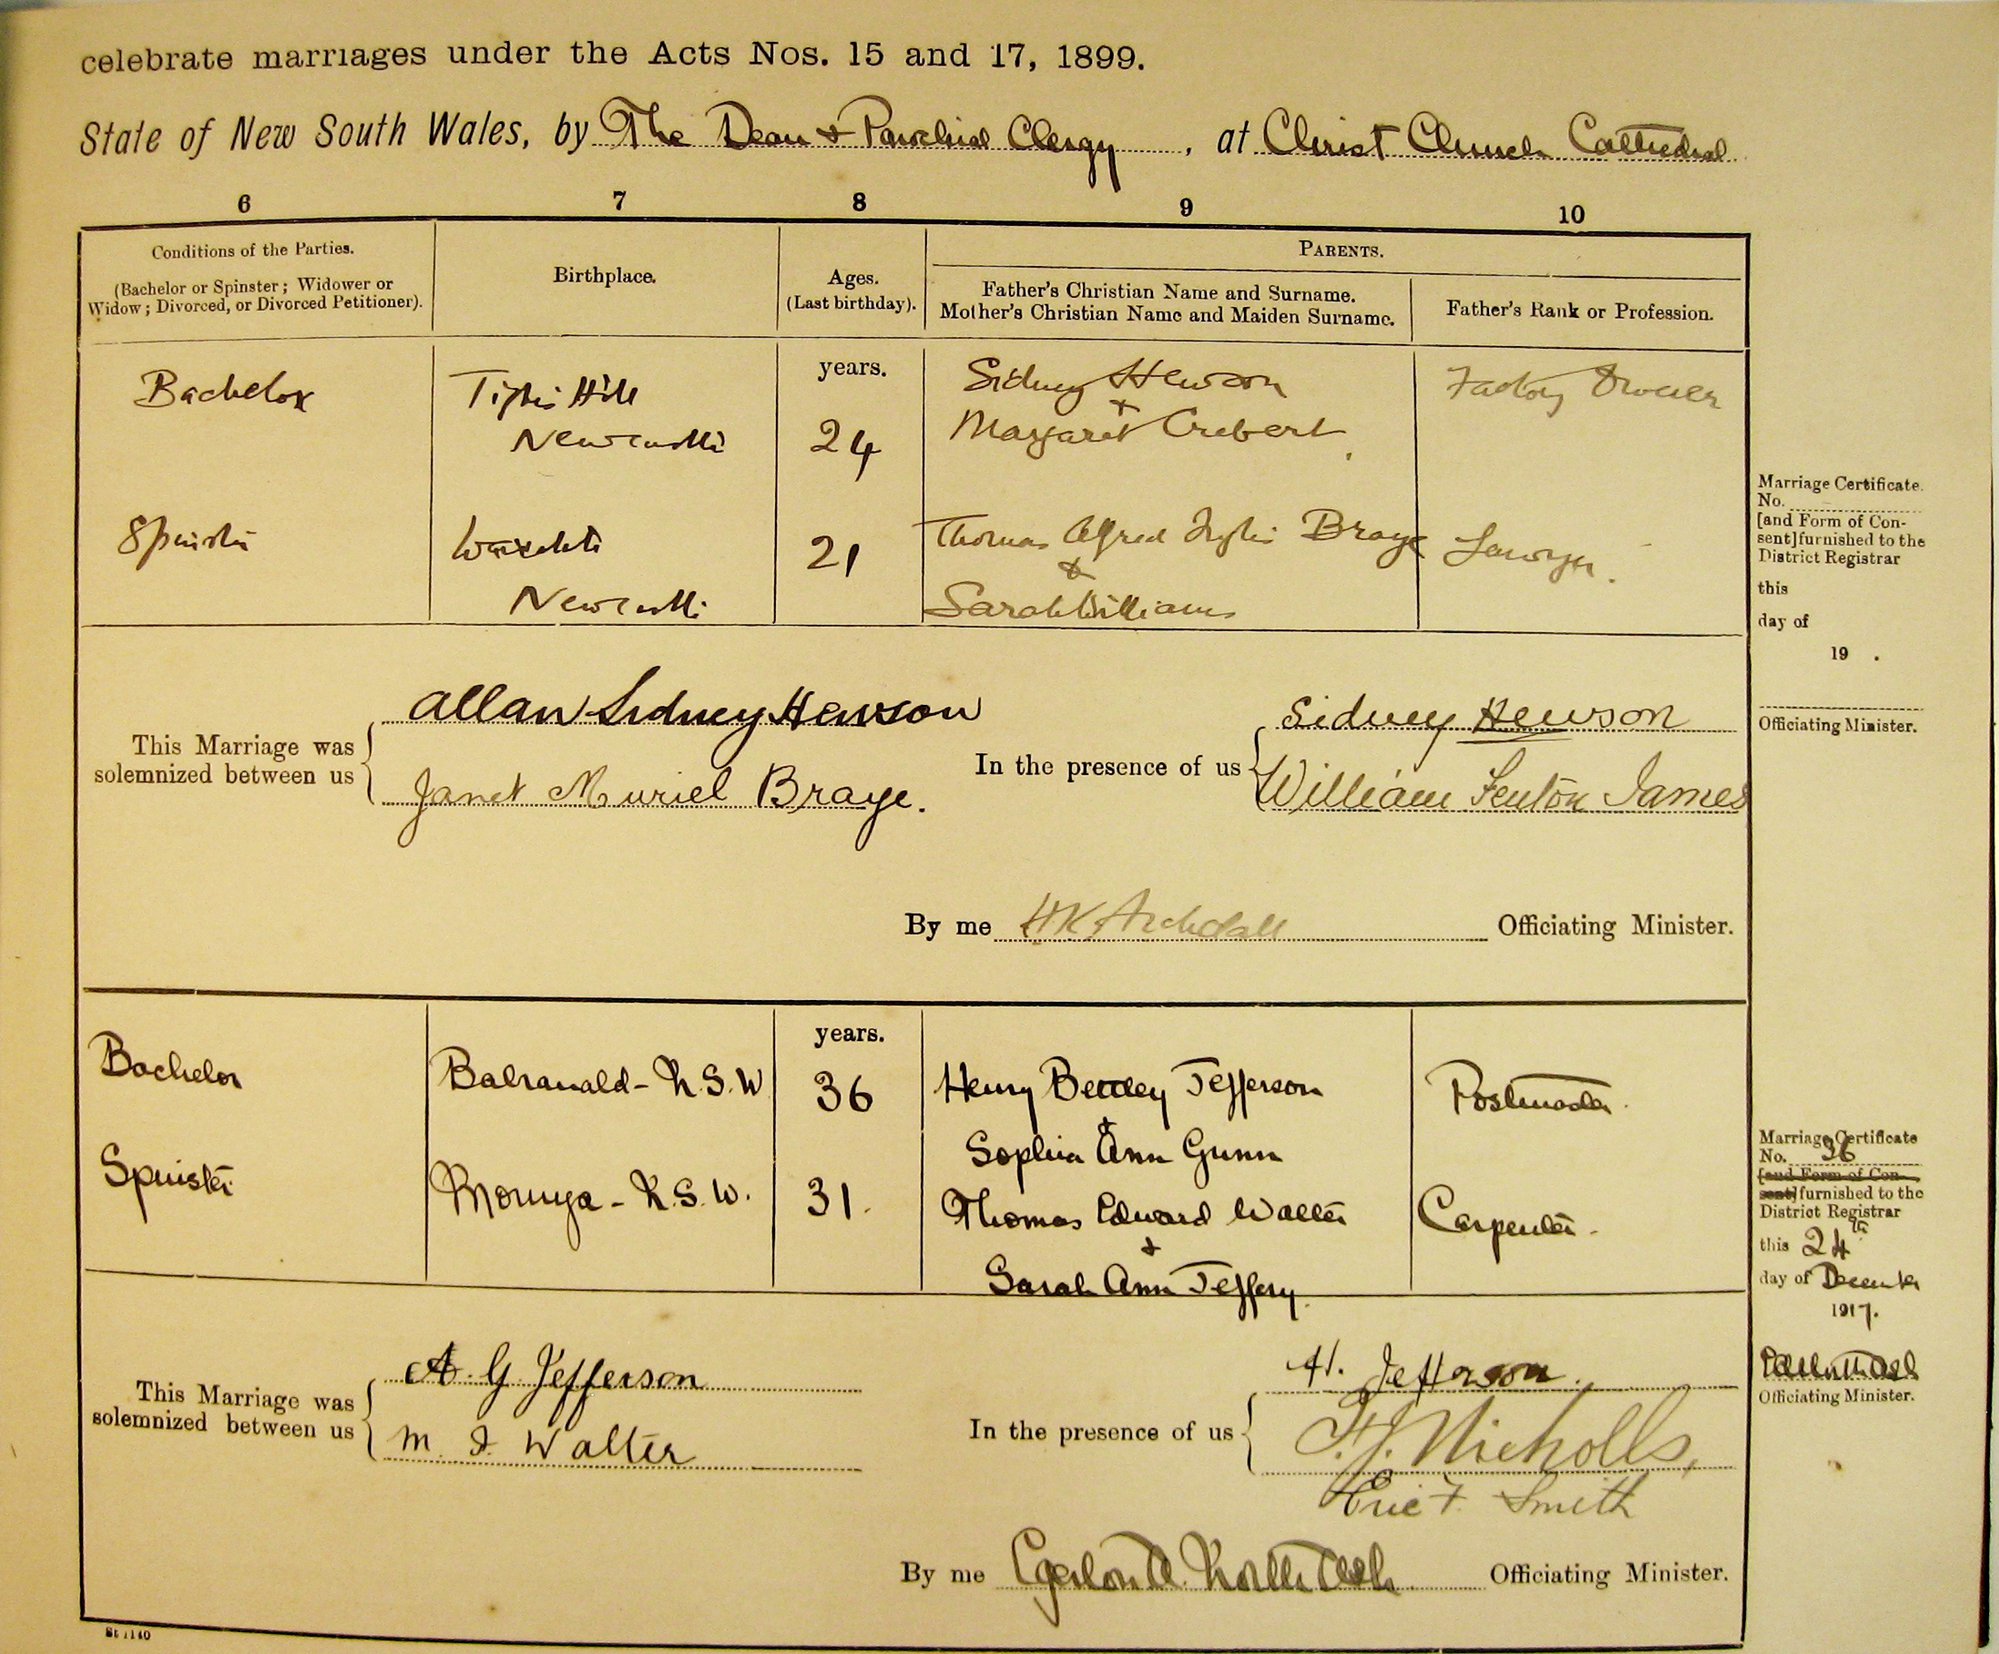 celebrate marriages under the Acts Nos. 15 and 17, 1899.
State of New South Wales, by The Dean & Parochial Clergy, at Christ Church Cathedral
6 7 8 9 10
Conditions of the Parties.
(Bachelor or Spinster; Widower or
Widow; Divorced, or Divorced Petitioner).
Birthplace.
Ages.
(Last birthday).
PARENTS.
Father's Christian Name and Surname.
Mother's Christian Name and Maiden Surname.
Father's Rank or Profession.
Bachelor
Tighes Hill
Newcastle
years.
24
Sidney Hewson
+
Margaret Crebert
Factory Owner
Spinster
Waratah
Newcastle
21
Thomas Alfred Braye
&
Sarah Williams
Lawyer.
This Marriage was
solemnized between us
Allan Sidney Hewson
Janet Muriel Braye.
In the presence of us
Sidney Hewson
William Fenton James
By me H K Archdall Officiating Minister.
Marriage Certificate.
No.
[and Form of Con-
sent] furnished to the
District Registrar
this
day of
19 .
Officiating Minister.
Bachelor
Balranald - N.S.W
years.
36
Henry Bettley Jefferson
&
Sophia Ann Gunn
Postmaster.
Spinster
Moruya - N.S.W.
31.
Thomas Edward Walter
&
Sarah Ann Jeffery.
Carpenter.
This Marriage was
solemnized between us
A. G. Jefferson
M. I. Walter
In the presence of us
H. Jefferson.
F. J. Nicholls,
Eric F. Smith
By me Egerton A. North Ash Officiating Minister.
Marriage Certificate
No. 36
[and Form of Con-
sent] furnished to the
District Registrar
this 24th
day of December
1917.
Officiating Minister.
St 1140